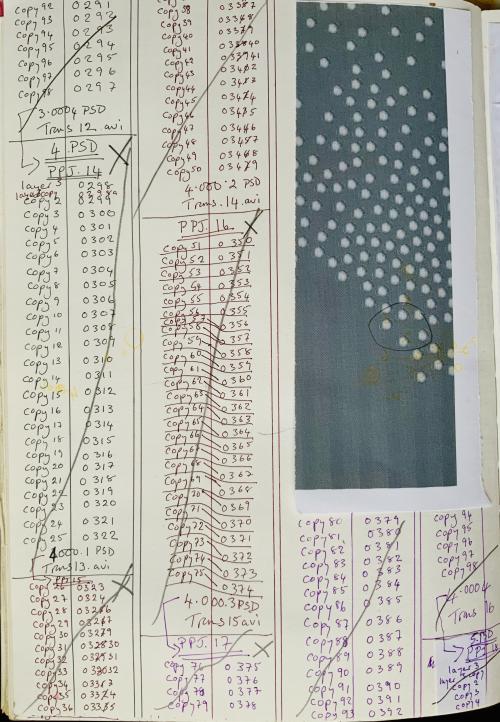 copy 92 0291
copy 93 0292
copy 94 0293
copy 95 0294
copy 96 0295
copy 97 0296
copy 98 0297
3.0004 PSD
Trans 12.avi
4 PSD
PPJ. 14
layer 3 0298
copy 2 0299
copy 3 0300
copy 4 0301
copy 5 0302
copy 6 0303
copy 7 0304
copy 8 0305
copy 9 0306
copy 10 0307
copy 11 0308
copy 12 0309
copy 13 0310
copy 14 0311
copy 15 0312
copy 16 0313
copy 17 0314
copy 18 0315
copy 19 0316
copy 20 0317
copy 21 0318
copy 22 0319
copy 23 0320
copy 24 0321
copy 25 0322
4.000.1 PSD
Trans 13.avi
PPJ 15
copy 26 0323
copy 27 0324
copy 28
copy 29
copy 30
copy 31
copy 32
copy 33
copy 34
copy 35
copy 36
copy 38
copy 39
copy 40
copy 41
copy 42
copy 43
copy 44
copy 45
copy 46
copy 47
copy 48
copy 49
copy 50
4.000.2 PSD
Trans.14.avi
PPJ. 16
copy 51 0350
copy 52 0351
copy 53
copy 54 0353
copy 55 0354
copy 56 0355
copy 57
copy 58 0356
copy 59 0357
copy 60 0358
copy 61 0359
copy 62 0360
copy 63 0361
copy 64 0362
copy 65 0363
copy 66 0364
copy 67 0365
copy 68 0366
copy 69 0367
copy 70 0368
copy 71 0369
copy 72 0370
copy 73 0371
copy 74 0372
copy 75 0373
0374
4.000.3 PSD
Trans 15 avi
PPJ. 17
copy 76 0375
copy 77 0376
copy 78 0377
copy 79 0378
copy 80 0379
copy 81 0380
copy 82 0381
copy 83 0382
copy 84 0383
copy 85 0384
copy 86 0385
copy 87 0386
copy 88 0387
copy 89 0388
copy 90 0389
copy 91 0390
copy 92 0391
copy 93 0392
copy 94
copy 95
copy 96
copy 97
copy 98
4.0004
Trans 16
5 PSD
PPJ 18
layer 3
copy 2
copy 3
copy 4